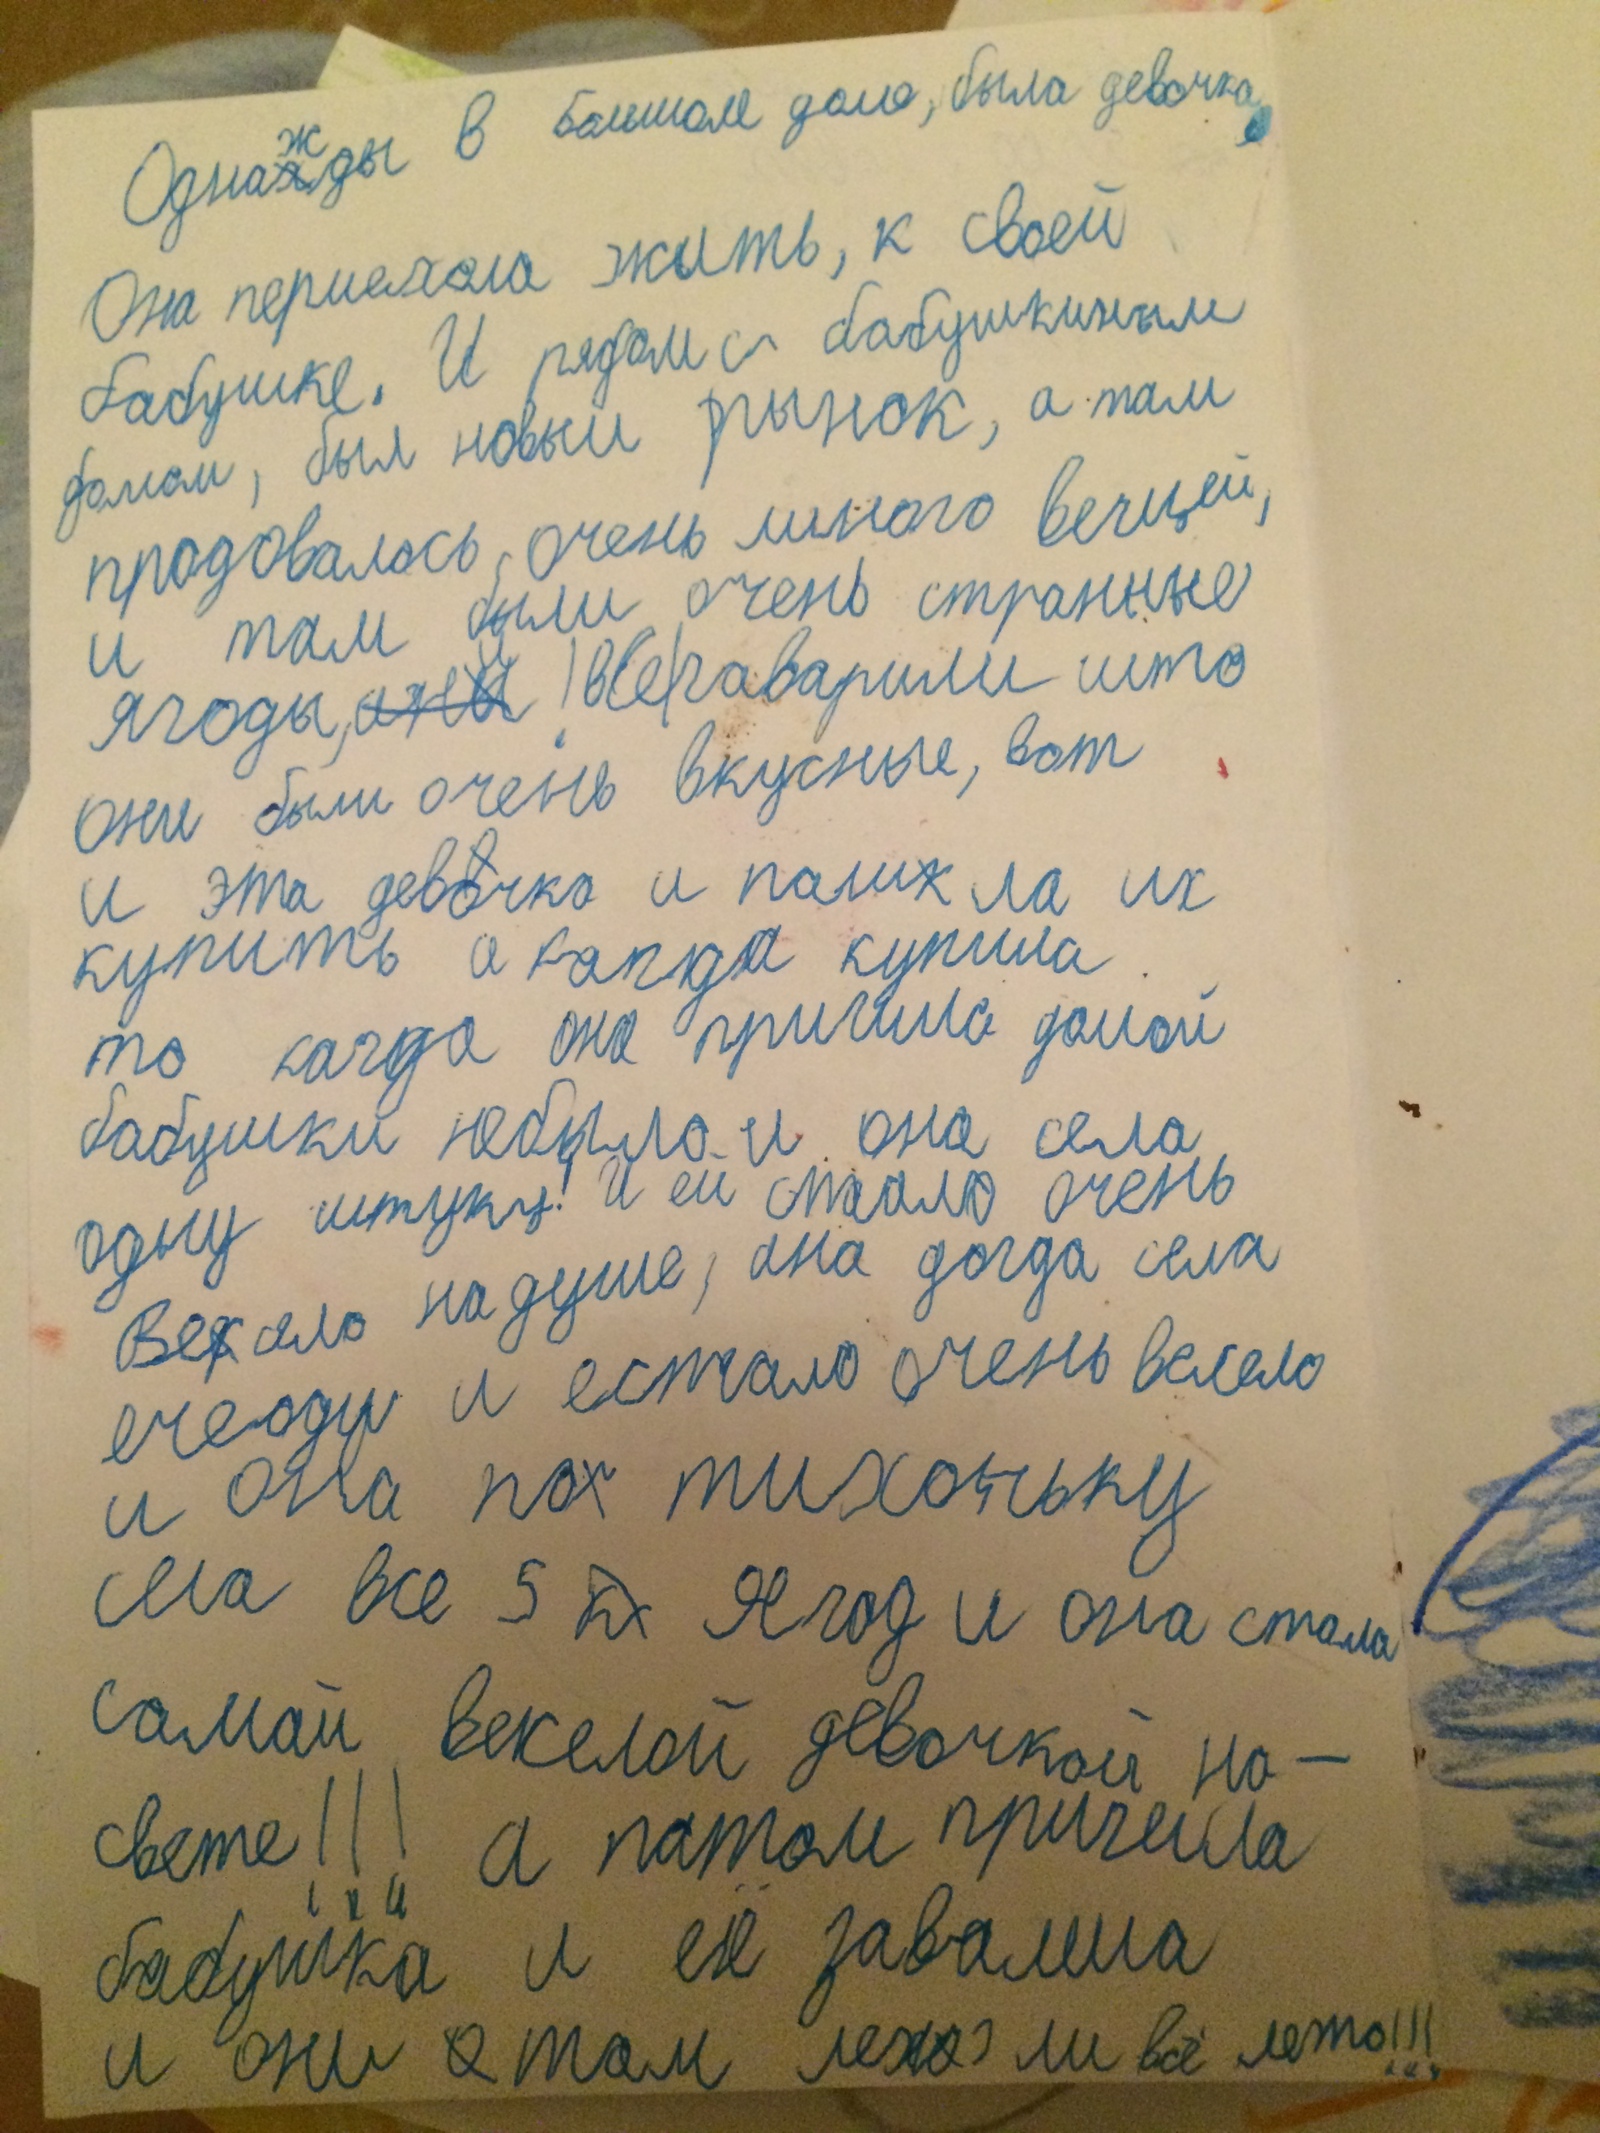 Однажды в большом доме, была девочка
Она периехала жить, к своей
бабушке. И рядом с бабушкиным
домом, был новый рынок, а там
продовалось очень много вечщей,
и там были очень странные
ягоды, ! все гаварили што
они были очень вкусные, вот
и эта девочка и пашла их
купить а кагда купила
то кагда она пришла домой
бабушки небыло и она села
одну штуку! И ей стало очень
весело на душе, она догда села
ечеоду и ей стало очень весело
и она по тихоньку
села все 5 ягод и она стала
самай веселой девочкой на-
свете!!! а патом пришла
бабушка и её завалила
и они там лежали всё лето!!!